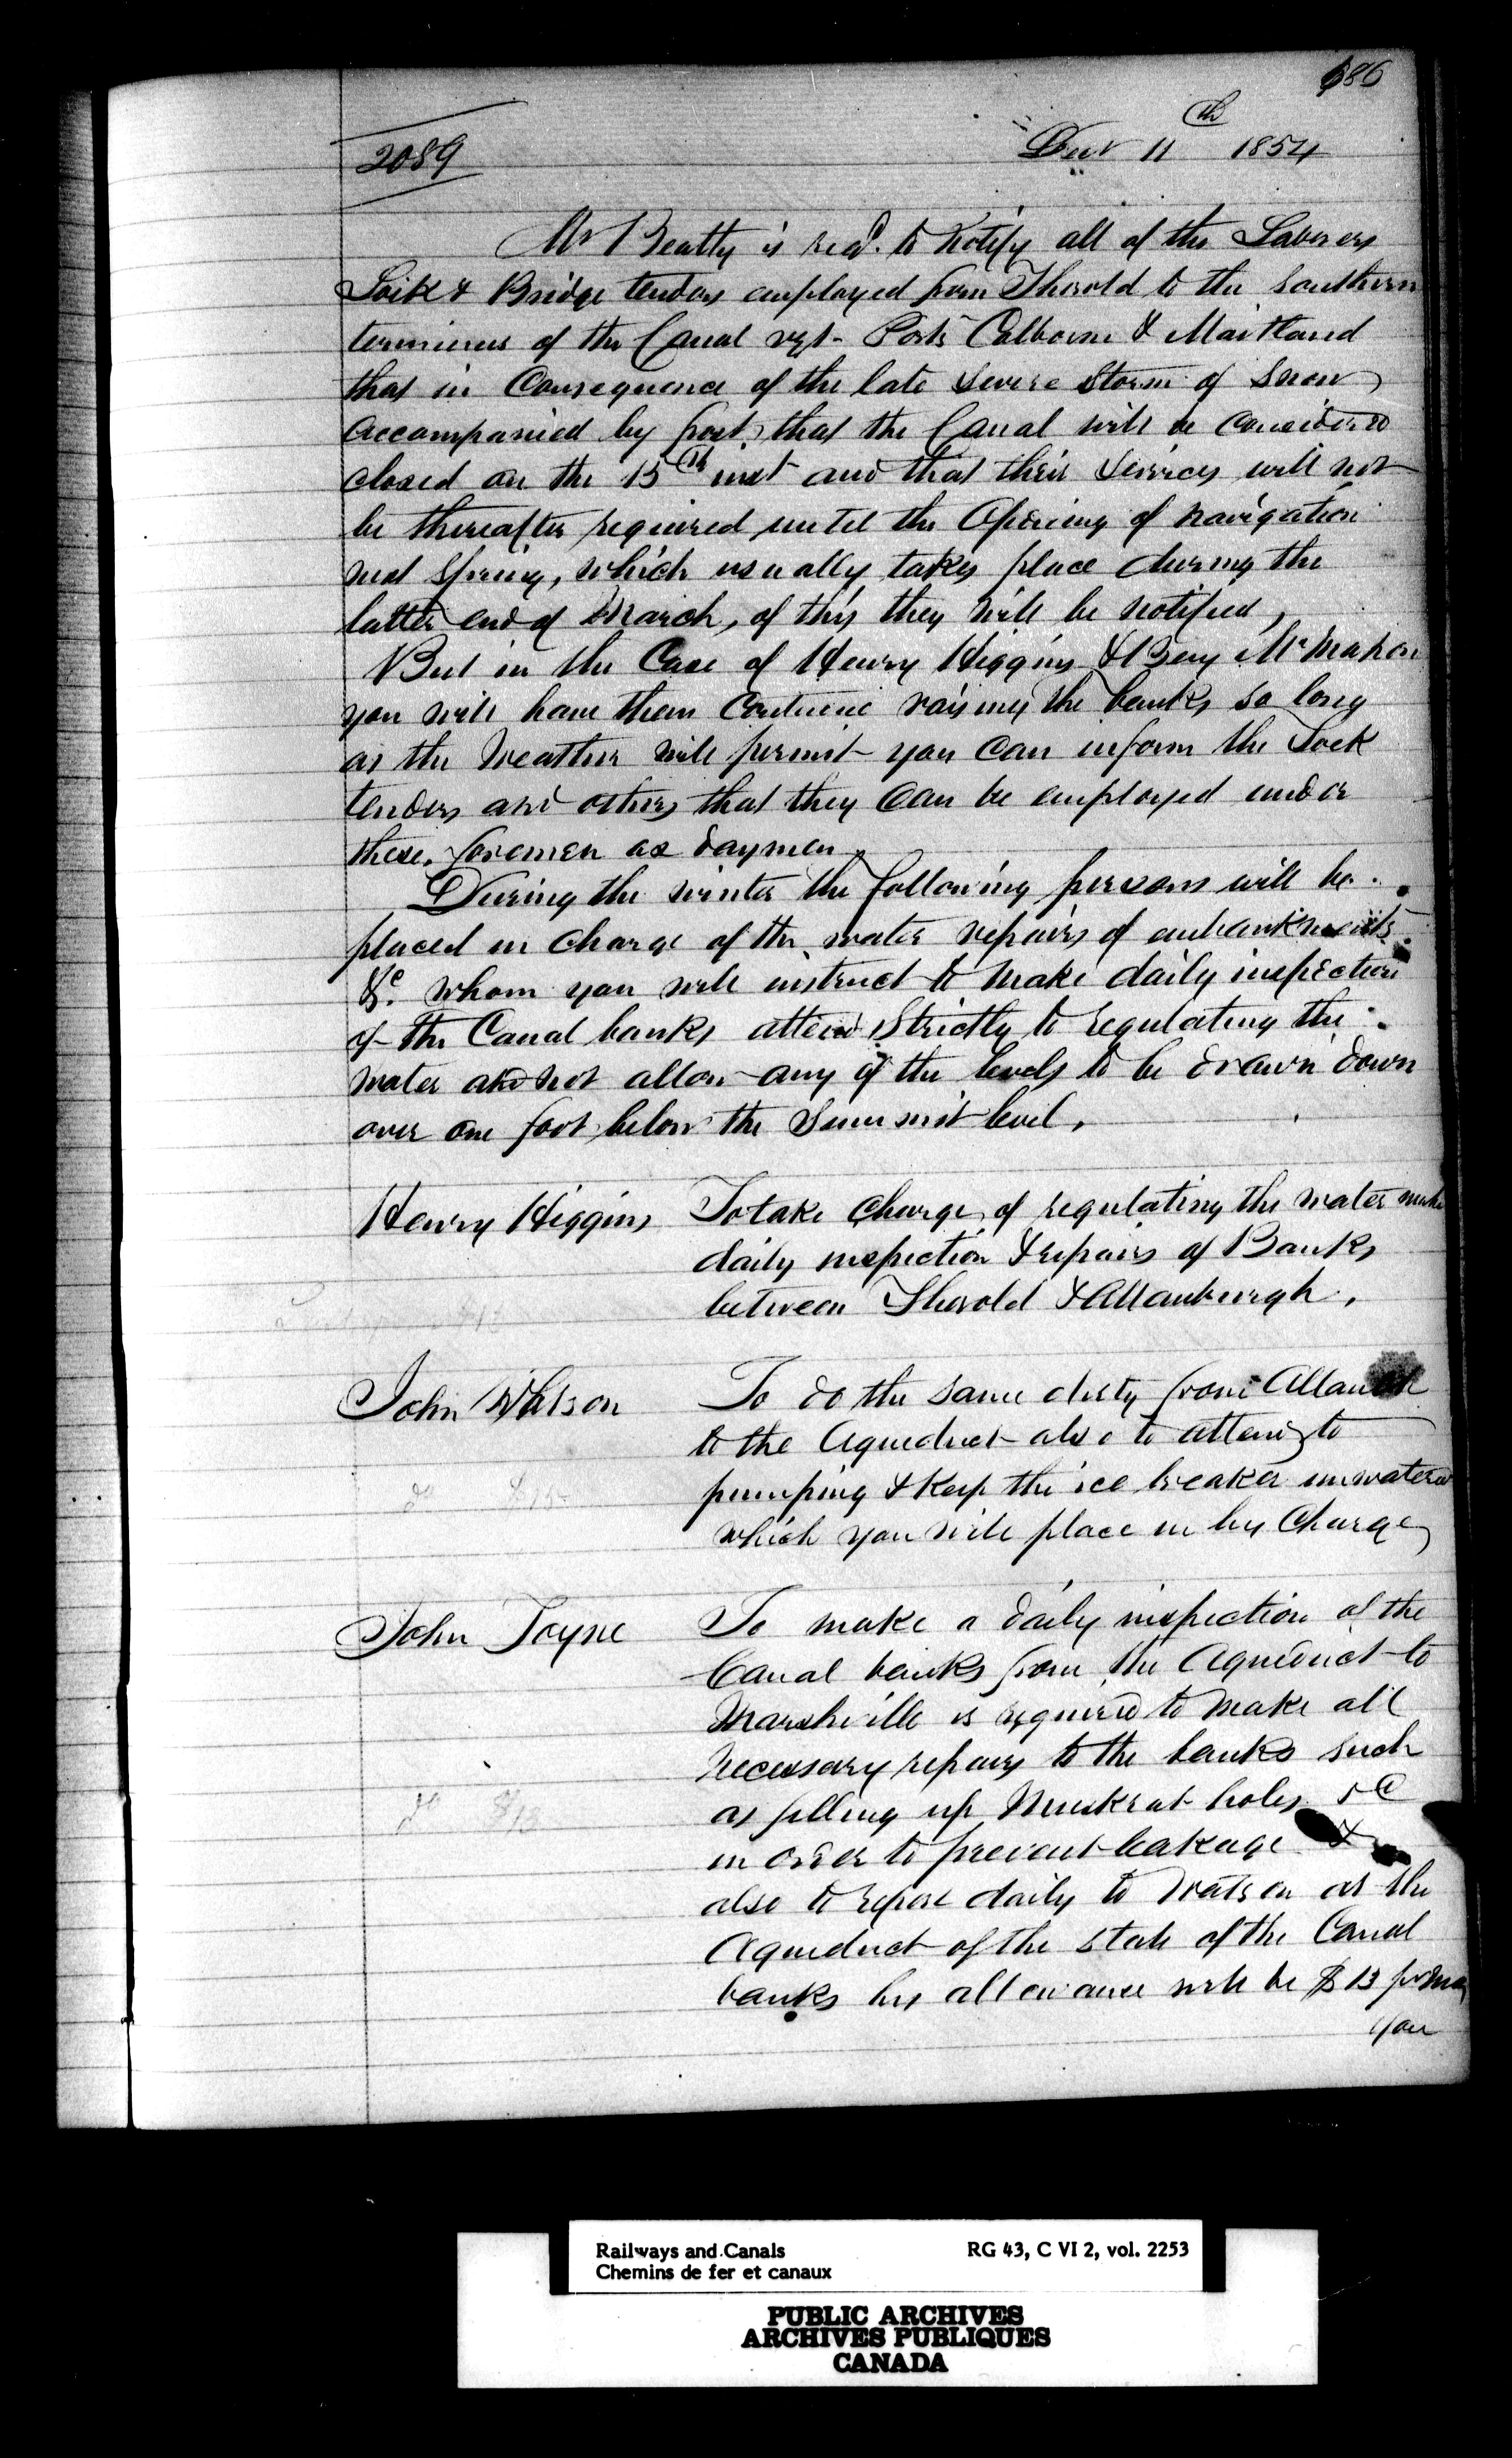 686
2089
Decr 11th 1854
Mr Beatty is reqd. to Notify all of the Laborers
Lock & Bridge tenders employed from Thorold to the Southern
terminus of the Canal vzt- Ports Colborne & Maitland
that in Consequence of the late Severe Storm of Snow
accompanied by frost, that the Canal will be considered
closed on the 15th inst and that their Services will not
be thereafter required until the Opening of navigation
next Spring, which usually takes place during the
latter end of March, of this they will be notified,
But in the Case of Henry Higgins & Benj McMahon
you will have them Continue raising the banks so long
as the Weather will permit- you Can inform the Lock
tenders and others that they Can be employed under
these foremen as daymen
During the winter the following persons will be
placed in charge of the water repairs of embankments
&c. whom you will instruct to make daily inspection
of the Canal banks attend Strictly to regulating the
water and not allow any of the levels to be drawn down
over one foot below the Summit level.
Henry Higgins To take Charge of regulating the water make
daily inspection & repairs of Banks
between Thorold & Allanburgh.
John Watson To do the same duty from
to the Aqueduct also to attend to
pumping & Keep the ice breaker unwatered
which you will place in his Charge
do $15
John Toyne To make a daily inspection of the
Canal banks from the Aqueduct to
Marshville is required to make all
necessary repairs to the banks such
as filling up Muskrat holes &c
do $13
in order to prevent leakage &
also to report daily to Watson at the
Aqueduct of the state of the Canal
banks his allowance will be $13 pr
you
Railways and Canals
Chemins de fer et canaux
RG 43, C VI 2, vol. 2253
PUBLIC ARCHIVES
ARCHIVES PUBLIQUES
CANADA